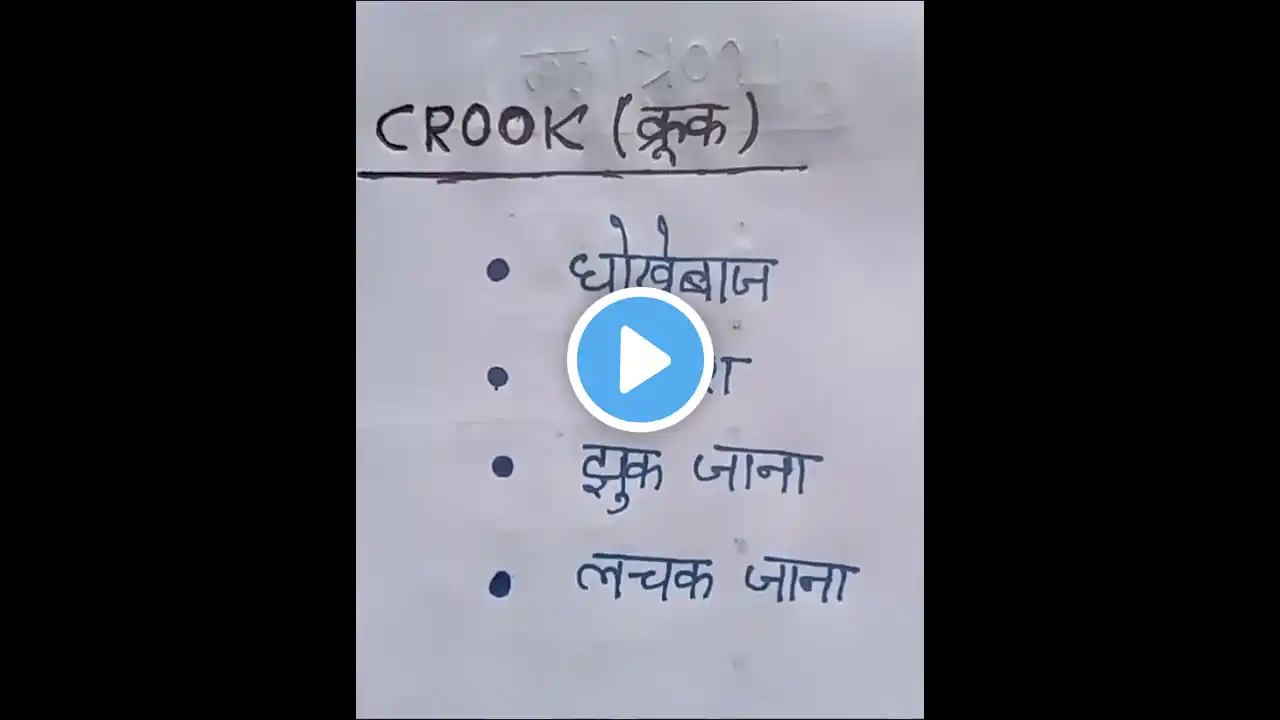 CROOK (क्रूक)
• धोखेबाज
•
• झुक जाना
• लचक जाना